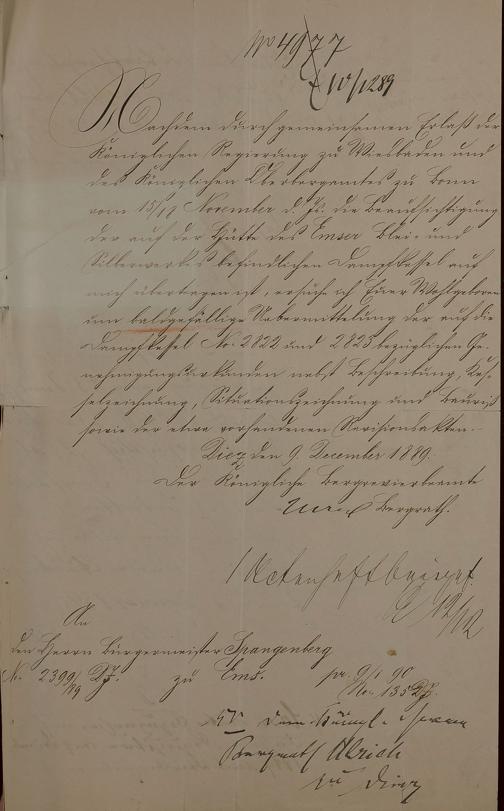 No 4977
10/12 89
Nachdem durch gemeinsamen Erlaß der
Königlichen Regierung zu Wiesbaden und
des Königlichen Oberbergamtes zu Bonn
vom 15/19 November d. Js. die Beaufsichtigung
der auf der Hütte des Emser Blei- und
Silberwerkes befindlichen Dampfkessel auf
mich übertragen ist, ersuche ich Euer Wohlgeboren
um baldgefällige Uebermittelung der auf die
Dampfkessel No. 2822 und 2823 bezüglichen Ge-
nehmigungsurkunden nebst Beschreibung, Kes-
selzeichnung, Situationszeichnung und Bauriß
sowie der etwa vorhandenen Revisionsakten.
Diez den 9. December 1889.
Der Königliche Bergrevierbeamte
Bergrath.
1 Actenheft beigef.
12/12
An
den Herrn Bürgermeister Spangenberg
No. 2399/89 zu Ems.
pr. 9/1 90
No. 135
dem Königl.
Bergrath Ulrich
zu Diez